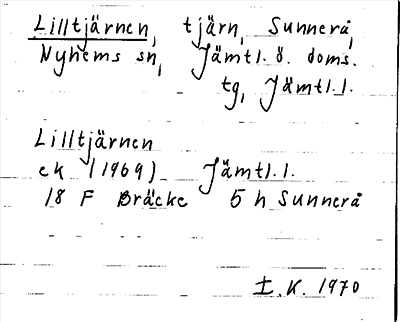 Lilltjärnen, tjärn, Sunnerå,
Nyhems sn, Jämtl. ö. doms.
tg, Jämtl. l.
Lilltjärnen
ek (1969) Jämtl. l.
18 F Bräcke 5 h Sunnerå
I. K. 1970